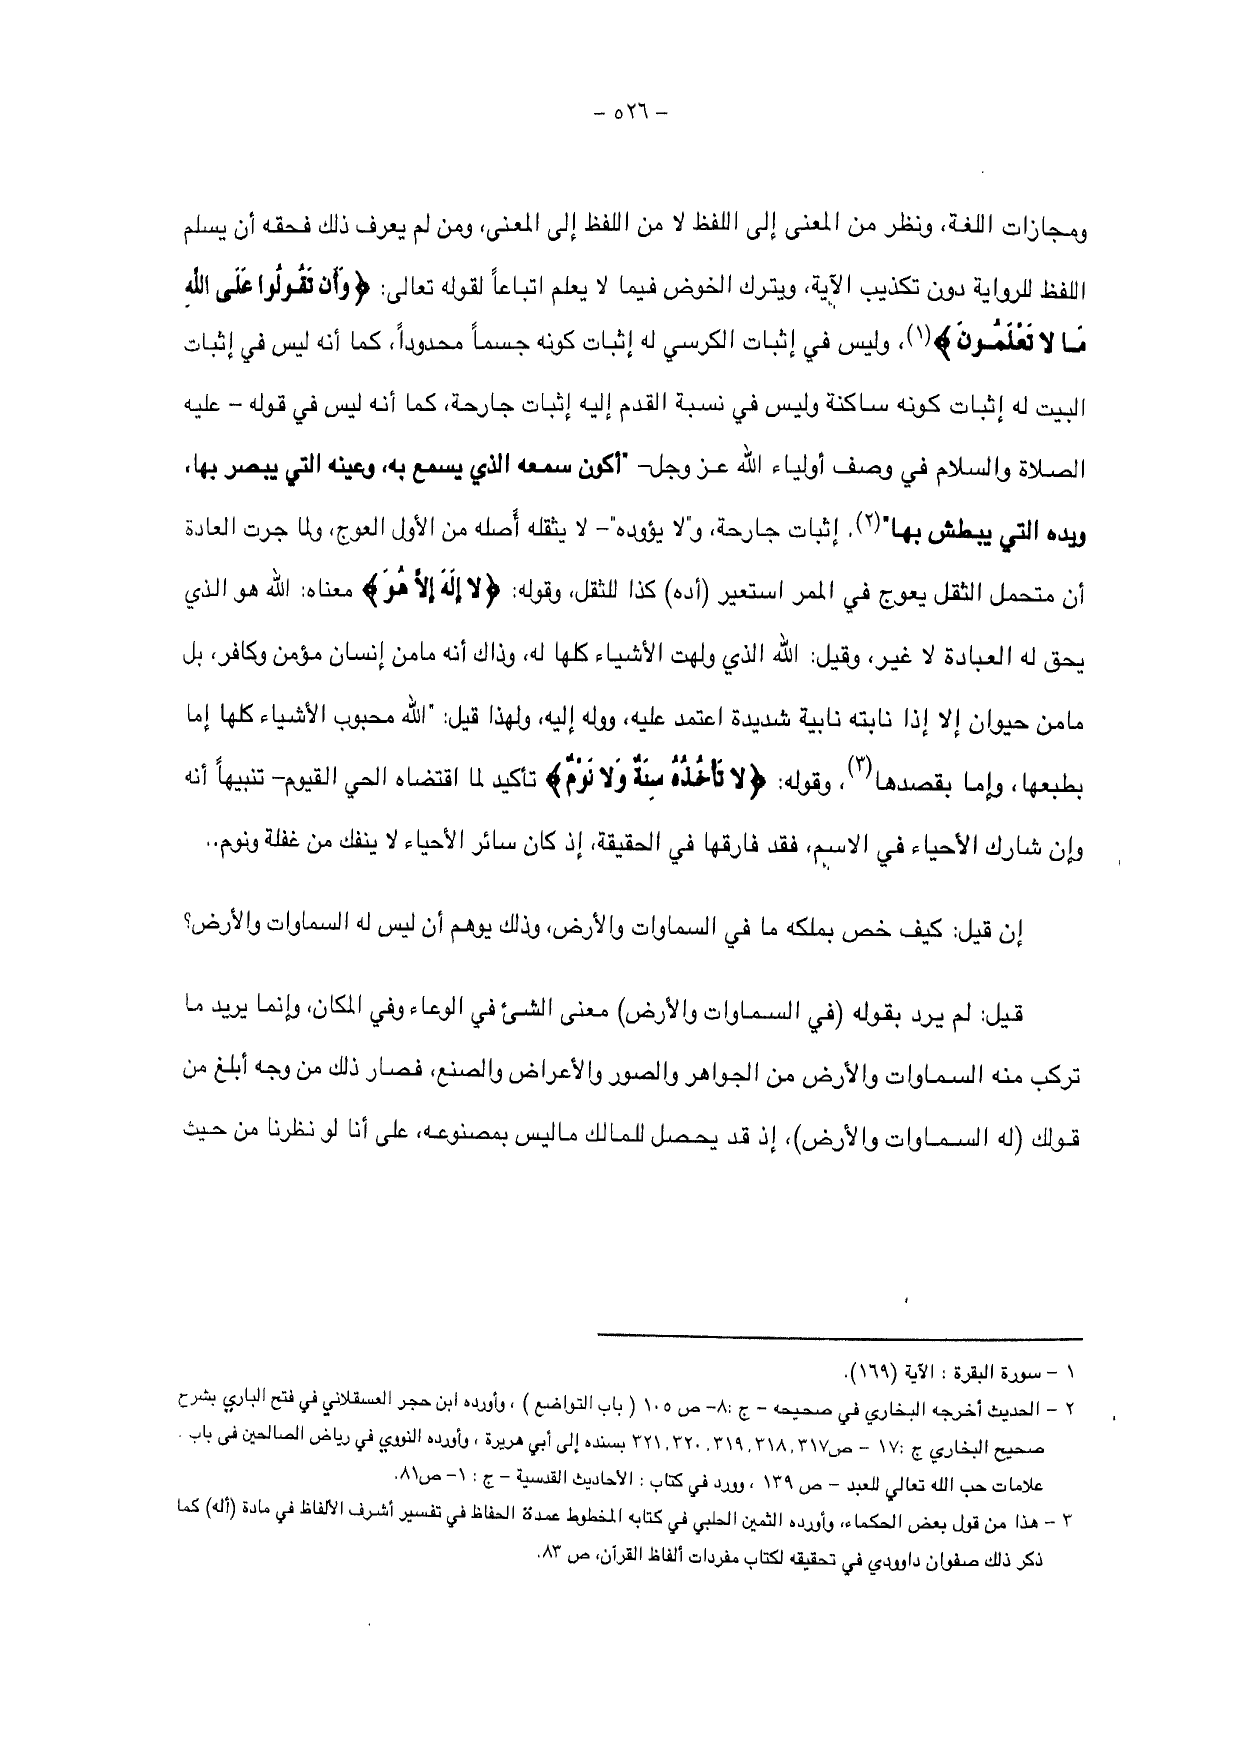 – ٥٢٦ –
ومجازات اللغة، ونظر من المعنى إلى اللفظ لا من اللفظ إلى المعنى، ومن لم يعرف ذلك فحقه أن يسلم
اللفظ للرواية دون تكذيب الآية، ويترك الخوض فيما لا يعلم اتباعاً لقوله تعالى: ﴿وَأَن تَقُولُوا عَلَى اللَّهِ
مَا لا تَعْلَمُونَ﴾(١)، وليس في إثبات الكرسي له إثبات كونه جسماً محدوداً، كما أنه ليس في إثبات
البيت له إثبات كونه ساكنة وليس في نسبة القدم إليه إثبات جارحة، كما أنه ليس في قوله – عليه
الصلاة والسلام في وصف أولياء الله عز وجل– "أكون سمعه الذي يسمع به، وعينه التي يبصر بها،
ويده التي يبطش بها"(٢). إثبات جارحة، و"لا يؤوده"– لا يثقله أصله من الأول العوج، ولما جرت العادة
أن متحمل الثقل يعوج في المر استعير (أده) كذا للثقل، وقوله: ﴿لا إِلَهَ إِلاَّ هُوَ﴾ معناه: الله هو الذي
يحق له العبادة لا غير، وقيل: الله الذي ولهت الأشياء كلها له، وذاك أنه مامن إنسان مؤمن وكافر، بل
مامن حيوان إلا إذا نابته نابية شديدة اعتمد عليه، ووله إليه، ولهذا قيل: "الله محبوب الأشياء كلها إما
بطبعها، وإما بقصدها(٣)، وقوله: ﴿لا تَأْخُذُهُ سِنَةٌ وَلا نَوْمٌ﴾ تأكيد لما اقتضاه الحي القيوم– تنبيهاً أنه
وإن شارك الأحياء في الاسم، فقد فارقها في الحقيقة، إذ كان سائر الأحياء لا ينفك من غفلة ونوم..
إن قيل: كيف خص بملكه ما في السماوات والأرض، وذلك يوهم أن ليس له السماوات والأرض؟
قيل: لم يرد بقوله (في السماوات والأرض) معنى الشئ في الوعاء وفي المكان، وإنما يريد ما
تركب منه السماوات والأرض من الجواهر والصور والأعراض والصنع، فصار ذلك من وجه أبلغ من
قولك (له السماوات والأرض)، إذ قد يحصل للمالك ماليس بمصنوعه، على أنا لو نظرنا من حيث
١ – سورة البقرة : الآية (١٦٩).
٢ – الحديث أخرجه البخاري في صحيحه – ج :٨– ص ١٠٥ ( باب التواضع ) ، وأورده ابن حجر العسقلاني في فتح الباري بشرح
صحيح البخاري ج :١٧ – ص٣١٧، ٣١٨، ٣١٩، ٣٢٠، ٣٢١ بسنده إلى أبي هريرة ، وأورده النووي في رياض الصالحين في باب .
علامات حب الله تعالي للعبد – ص ١٣٩ ، وورد في كتاب : الأحاديث القدسية – ج : ١– ص٨١.
٣ – هذا من قول بعض الحكماء، وأورده الثمين الحلبي في كتابه المخطوط عمدة الحفاظ في تفسير أشرف الألفاظ في مادة (أله) كما
ذكر ذلك صفوان داوودي في تحقيقه لكتاب مفردات ألفاظ القرآن، ص ٨٣.